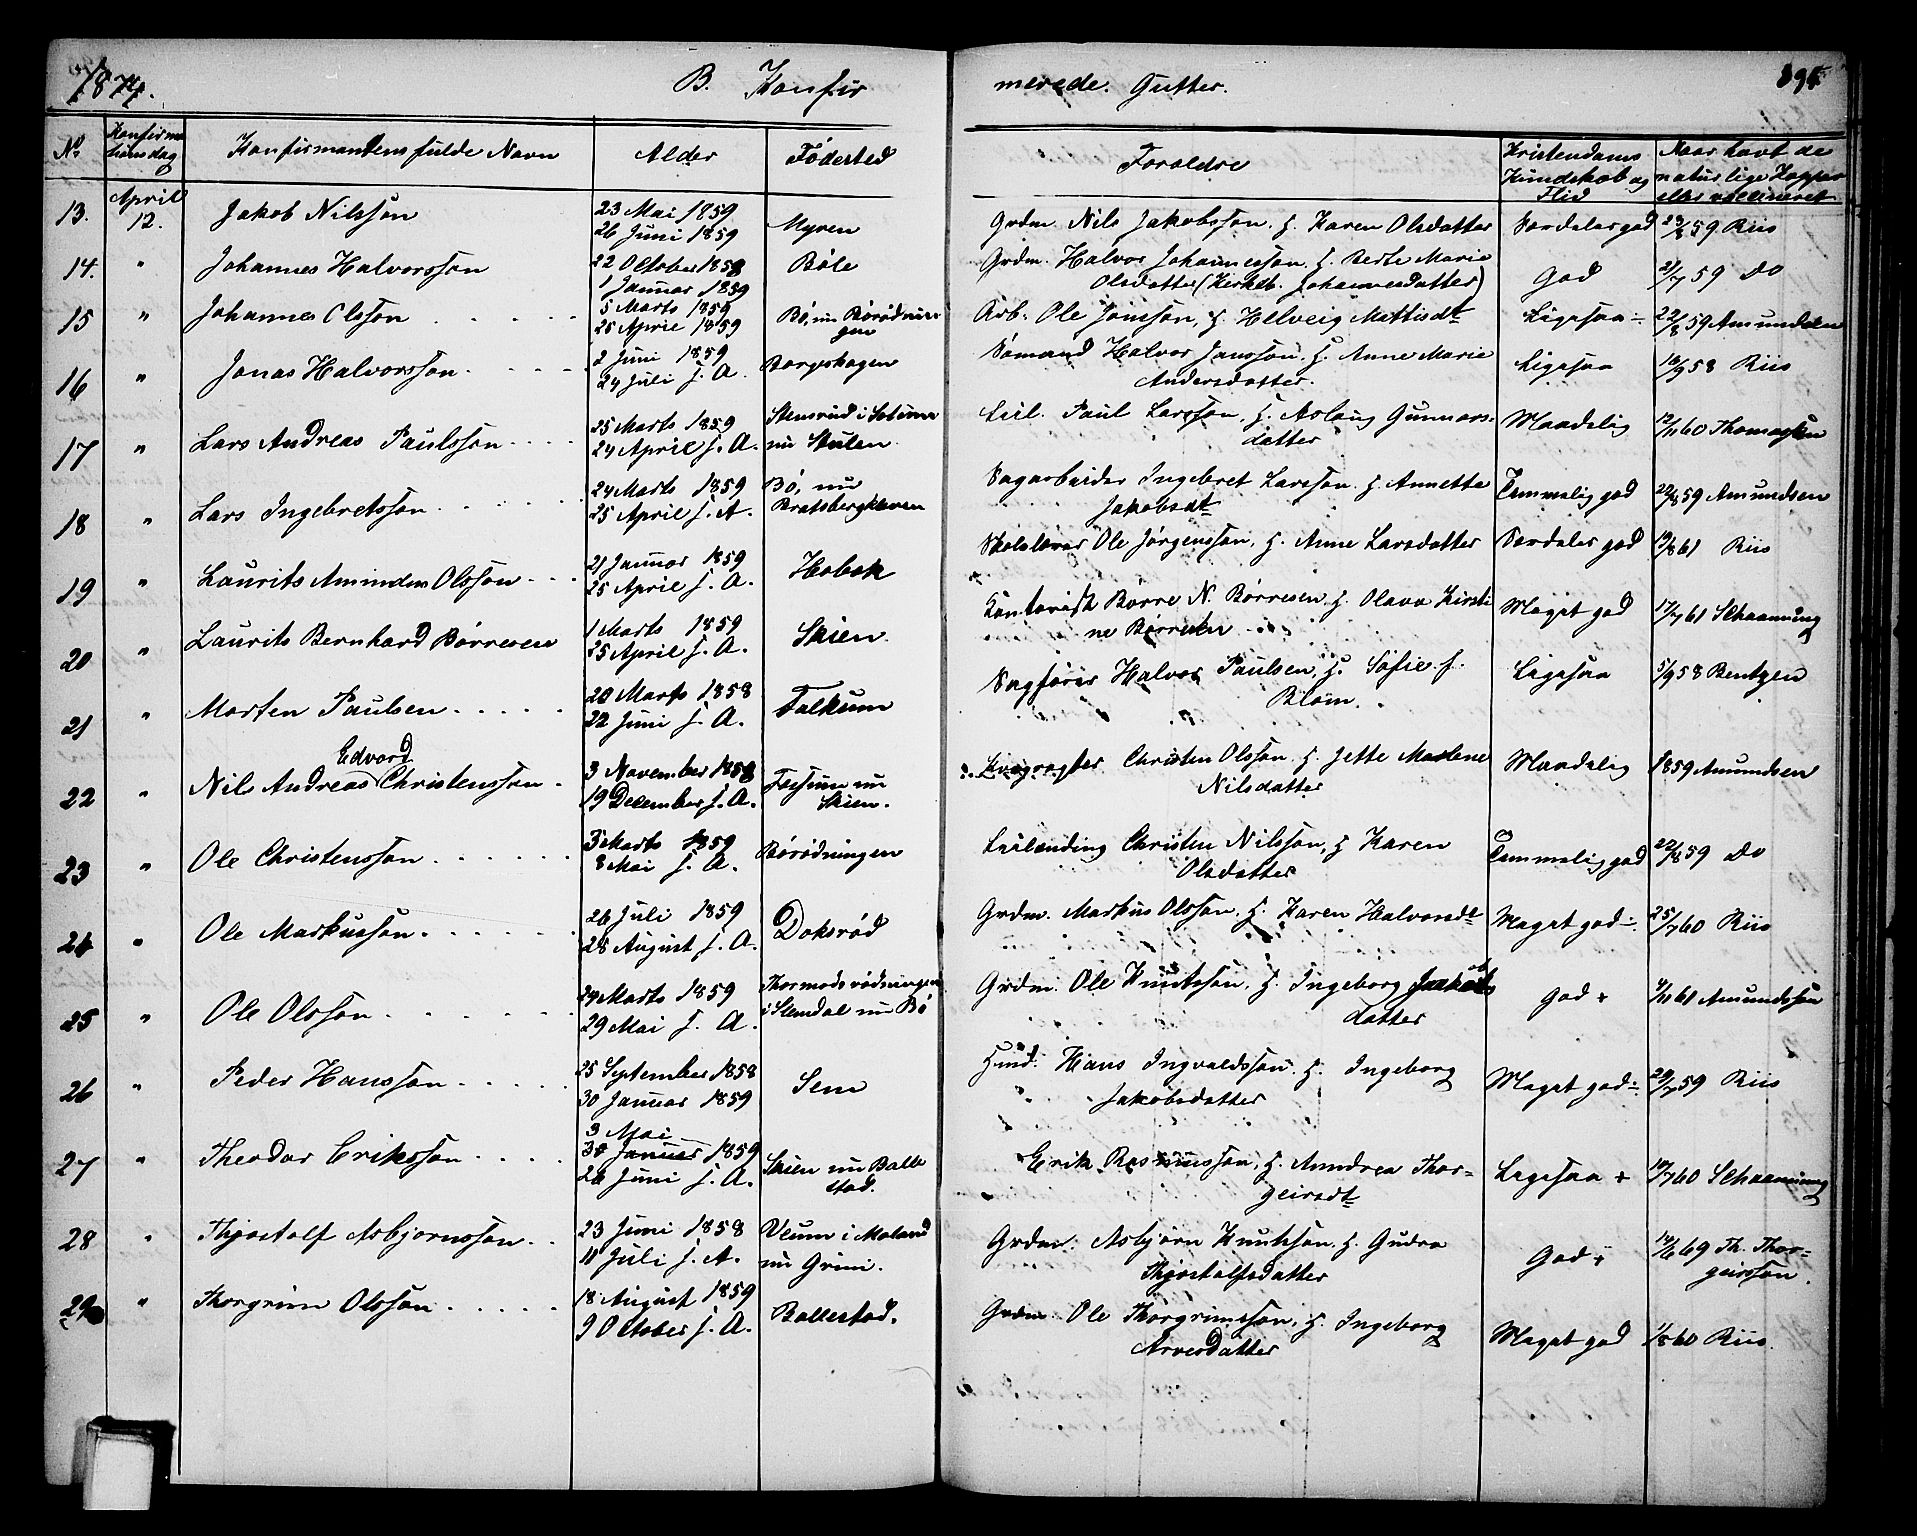 1874.
B. Konfir
merede. Gutter.
No
Konfirma
tionsdag
Konfirmantens fulde Navn
Alder
Fødested
Forældre
Kristendoms
Kundskab og
Flid
Naar havt de
naturlige Kopper
eller vaccineret
13.
April
12.
Jakob Nilsson
23 Mai 1859
26 Juni 1859
Myren
Grdm. Nils Jakobsson, H. Karen Olsdatter
Særdeles god
29/8 59 Riis
14.
"
Johannes Halvorsson
22 October 1858
1 Januar 1859
Bøle
Grdm. Halvor Johannesson, H. Berte Marie
Olsdatter (Kirkeb. Johannesdatter)
God
2/7 59 Do
15
"
Johannes Olsson
5 Marts 1859
25 April 1859
Bø, nu Børødnin-
gen
Arb. Ole Jonsson, H. Helveig Mattisdt
Ligesaa ÷
22/8 59 Amundsen
16
"
Jonas Halvorsson
2 Juni 1859
24 Juli s. A.
Borgeskogen
Sømand Halvor Jansson, H. Anne Marie
Andersdatter.
Ligesaa
16/9 58 Riis
17
"
Lars Andreas Paulsson
25 Marts 1859
24 April s. A.
nu Skulen
Leil. Paul Larsson, H. Aslaug Gunnars-
datter
Maadelig
12/11 60 Thomassen
18
"
Lars Ingebretsson
24 Marts 1859
25 April s. A.
Bø, nu
Bratsbergkleven
Sagarbeider Ingebret Larsson, H. Annette
Jakobsdt
Temmelig god
22/8 59 Amundsen
19
"
Laurits Aminden Olsson
21 Januar 1859
25 April s. A.
Hobæk
Skolelærer Ole Jørgensson, H. Anne Larsdatter
Særdeles god
19/8 61 Riis
20
"
Laurits Bernhard Børresen
1 Marts 1859
25 April s. A.
Skien
Kontorist Børre N. Børresen, H. Olava Kirsti
ne Børresen
Meget god
17/7 61 Schaanning
21
"
Morten Paulsen
20 Marts 1858
22 Juni s. A.
Falkum
Sagfører Halvor Paulsen, H. Sofie f.
Blom.
Ligesaa
5/9 58 Bentzen
22
"
Edvard
Nils Andreas Christensson
3 November 1858
19 December s. A.
Fossum nu
Skien.
Christen Olsson, H. Jette Marlene
Nilsdatter
Maadelig
1859 Amundsen
23
"
Ole Christensson
3 Marts 1859
8 Mai s. A.
Børødningen
Leilending Christen Nilsson, H. Karen
Olsdatter
Temmelig god
22/8 59 Do
24
"
Ole Markusson
26 Juli 1859
28 August s. A.
Doksrød
Grdm. Markus Olsson, H. Karen Halvorsdt
Meget god ÷
25/7 60 Riis
25
"
Ole Olsson
24 Marts 1859
29 Mai s. A.
Thormodsrødningen
i Slemdal nu Bø
Grdm. Ole Knutsson, H. Ingeborg Jakobs
datter
God +
4/11 61 Amundssen
26
"
Peder Hansson
25 September 1858
30 Januar 1859
Sem
Husd. Hans Ingvaldsson, H. Ingeborg
Jakobsdatter
Meget god ÷
29/7 59 Riis
27
"
Theodor Eriksson
3 Mai
30 Januar 1859
26 Juni s. A.
Skien nu Balle
stad.
Erik Rasmusson, H. Anndrea Thor-
geirsdt
Ligesaa +
10/7 60 Schaanning
28
"
Thjostolf Asbjørnsson
23 Juni 1858
11 Juli s. A.
Veum i Moland
nu Grini.
Grdm. Asbjørn Knutson, H. Gudra
Thjostolfsdatter
God +
14/6 69 Th. Thor-
geirsson.
29
"
Thorgrim Olsson
18 August 1859
9 October s. A.
Ballestad.
Grdm. Ole Thorgrimsson, H. Ingeborg
Arvesdatter
Meget god
1/8 60 Riis.